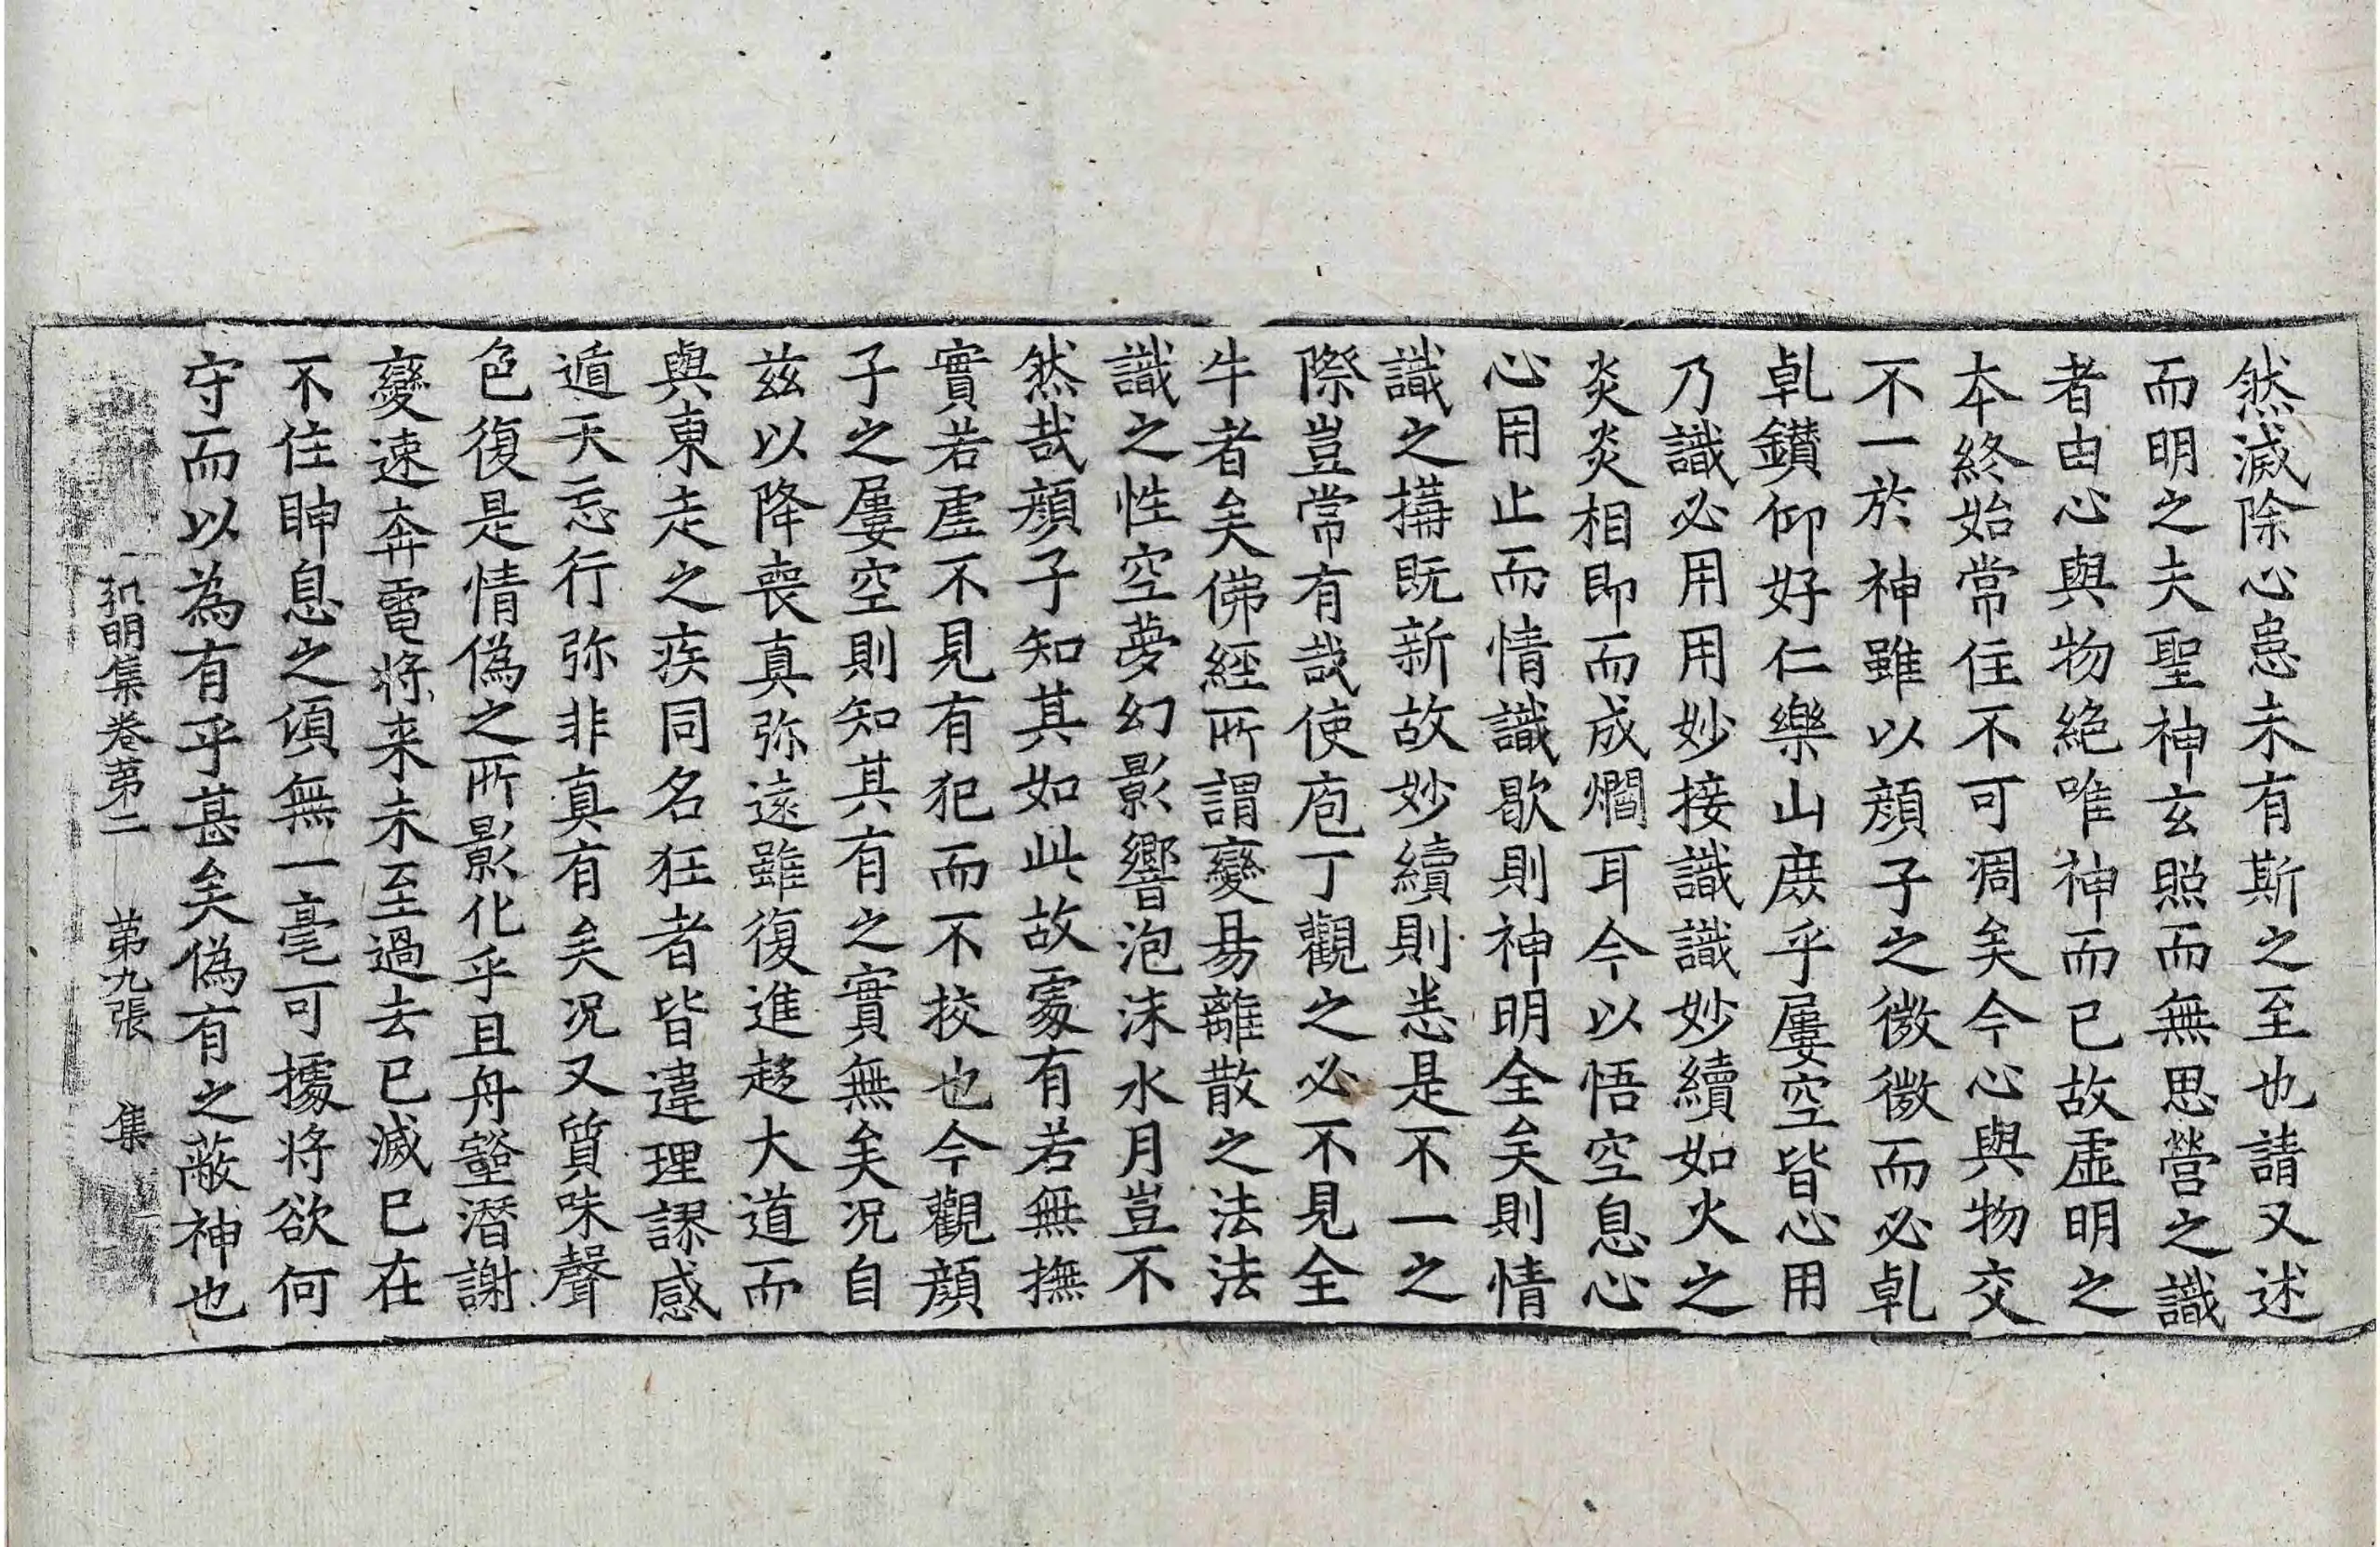 然滅除心患未有斯之至也請又述
而明之夫聖神玄照而無思營之識
者由心與物絶唯神而已故虛明之
本終始常住不可凋矣今心與物交
不一於神雖以顔子之微微而必乹
乹鑚仰好仁樂山庶乎屢空皆心用
乃識必用用妙接識識妙續如火之
炎炎相即而成爓耳今以悟空息心
心用止而情識歇則神明全矣則情
識之搆既新故妙續則悉是不一之
際豈常有哉使庖丁觀之必不見全
牛者矣佛經所謂變易離散之法法
識之性空夢幻影響泡沫水月豈不
然哉顔子知其如此故處有若無撫
實若虛不見有犯而不挍也今觀顔
子之屢空則知其有之實無矣况自
兹以降喪真弥遠雖復進趍大道而
與東走之疾同名狂者皆違理謬感
遁天忘行弥非真有矣况又質味聲
色復是情偽之所影化乎且舟壑潛謝
變速奔電將来未至過去已滅已在
不住瞬息之頃無一毫可據將欲何
守而以為有乎甚矣偽有之蔽神也
弘明集卷苐二 苐九張 集